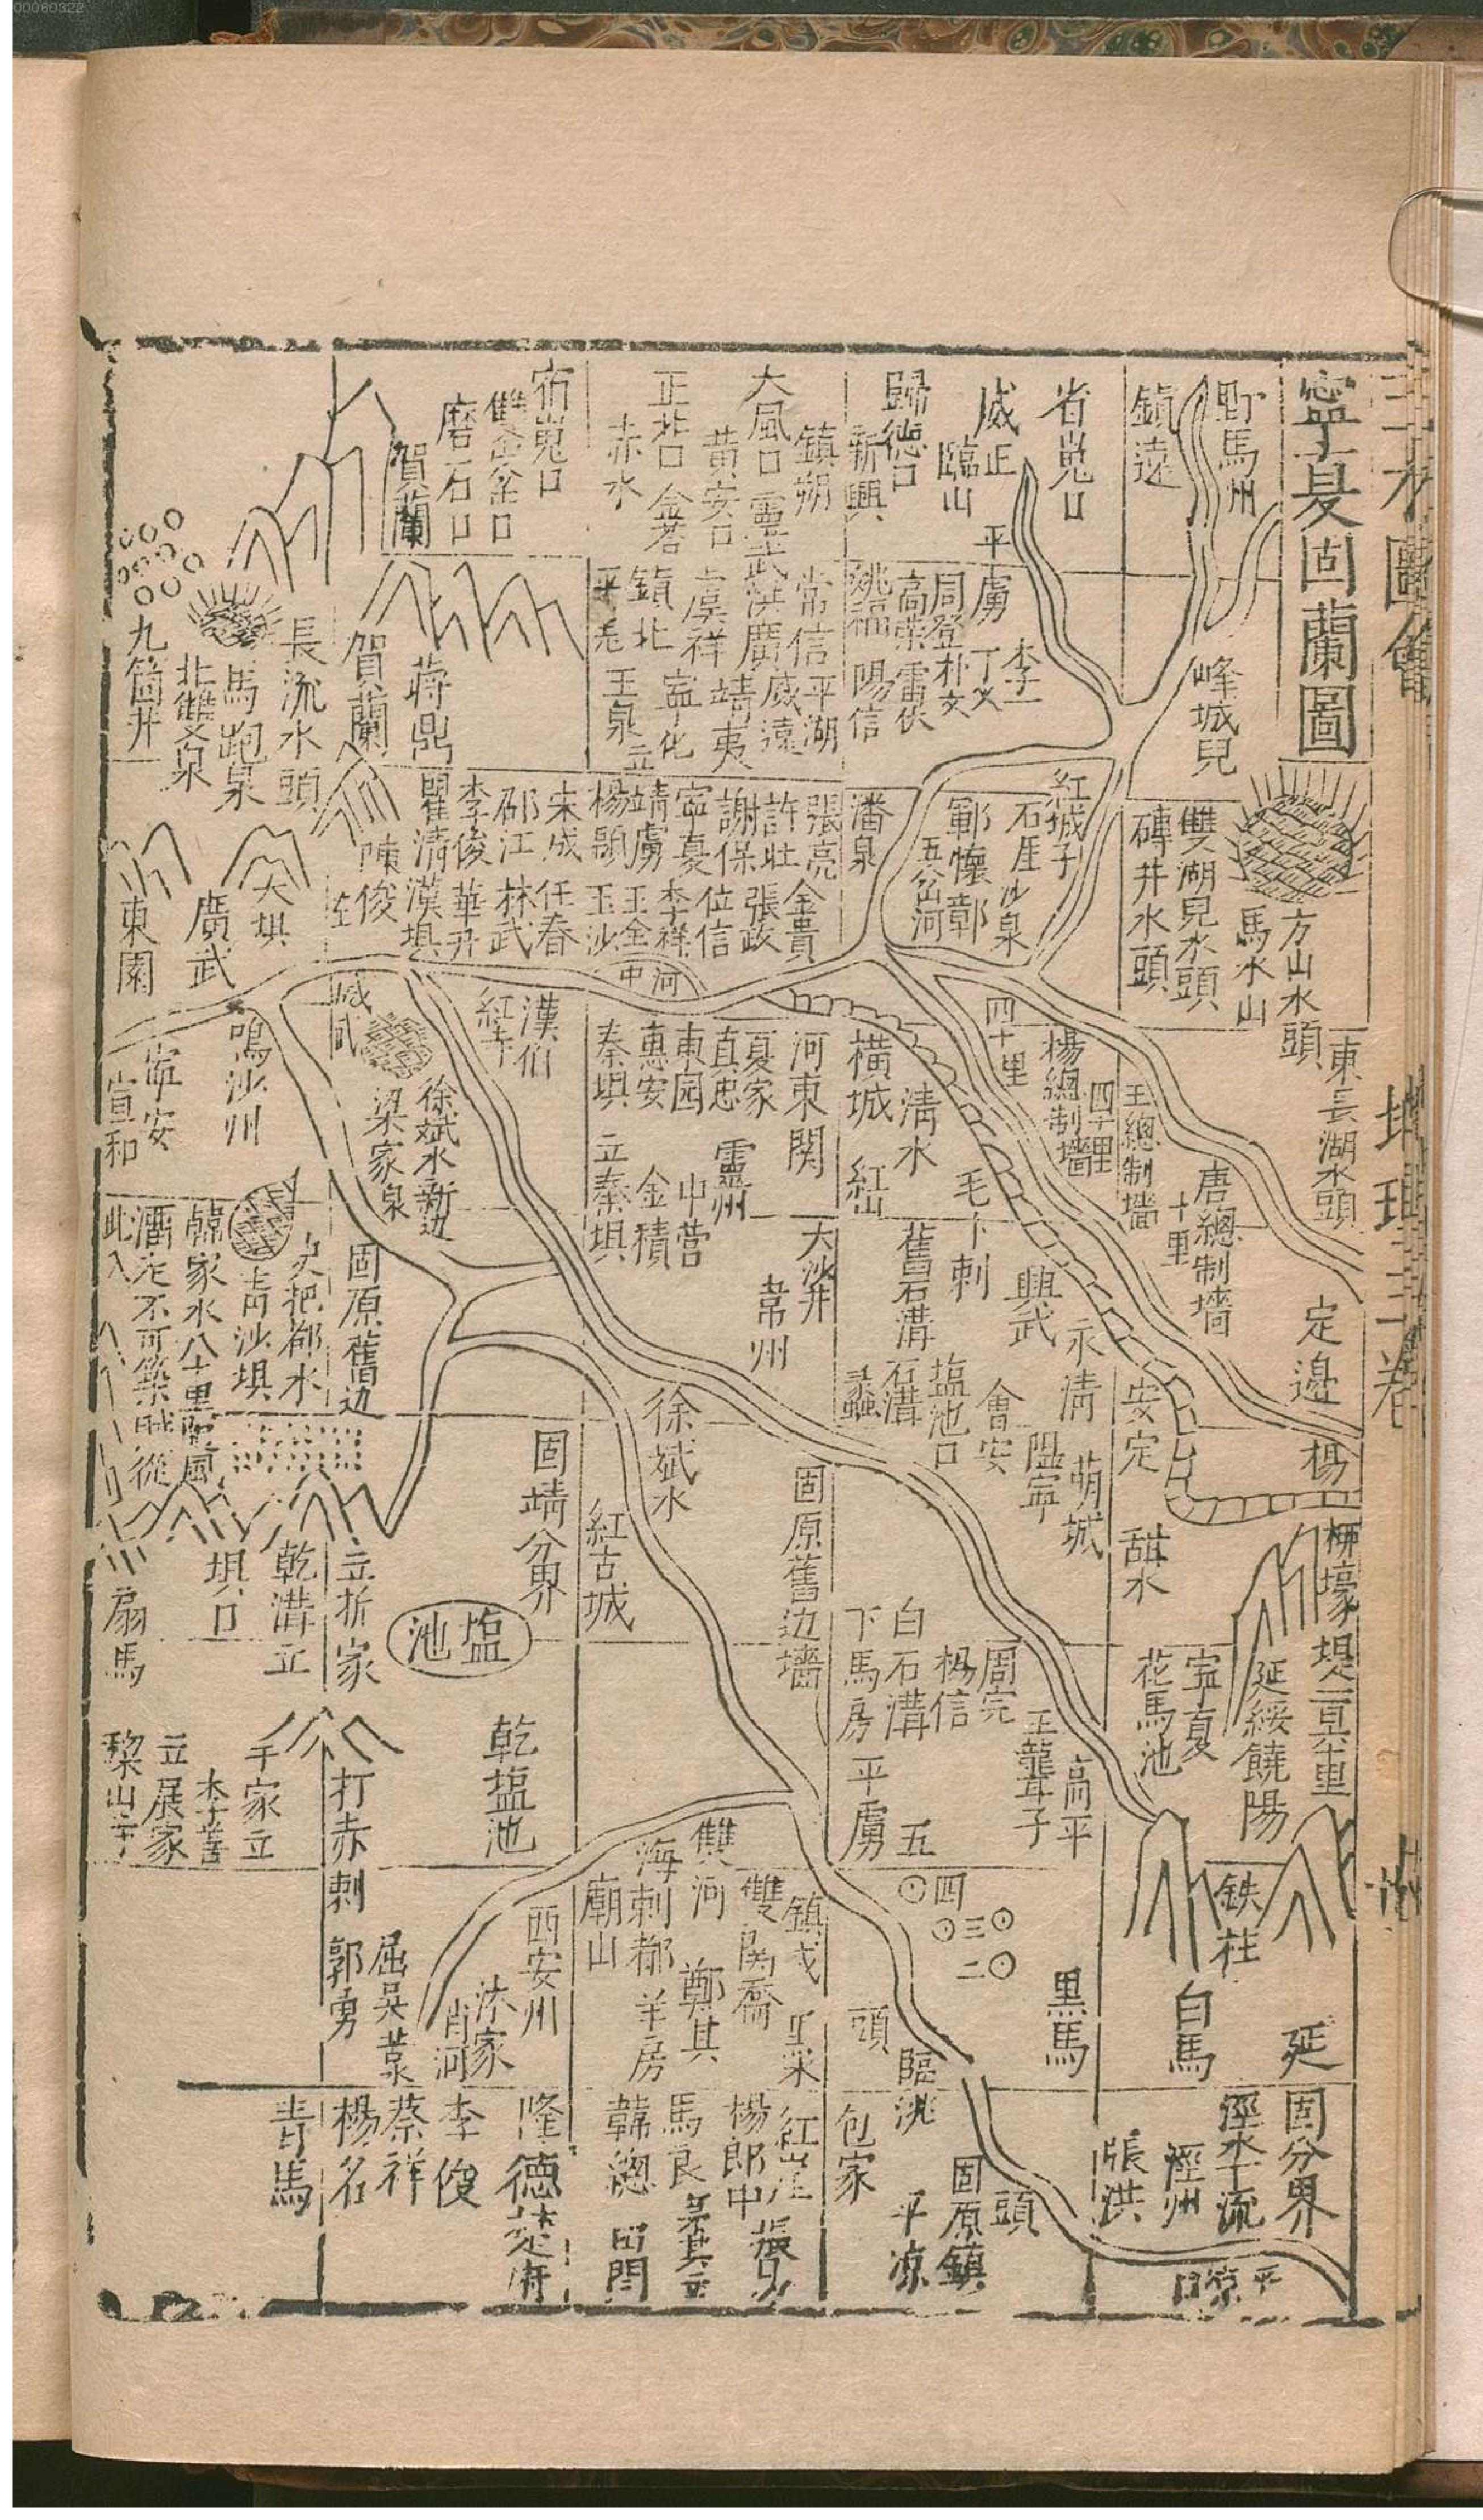 00060322
三才圖會
地理三卷
寧夏固蘭圖
野馬州
鎮遠
省嵬口
威正
臨山
平虜
歸德口
新興
鎮朔
大風口
靈武
黃安口
正北口
赤水
宿嵬口
雙金釜口
磨石口
賀蘭
峰城兒
李一
丁义
周登
朴文
高榮
雷伏
姚福
陽信
常信
平湖
洪廣
威遠
虞祥
靖夷
鎮北
寧化
王泉
蔣鼎
賀蘭
長流水頭
馬跑泉
北雙泉
九箇井
方山水頭
馬水山
雙湖兒水頭
磚井水頭
紅城子
石厓
沙泉
鄆懷
鄣
五岔河
潘泉
張亮
金貴
許壯
張政
謝保
位信
寧夏
李祥
靖虜
王金
楊顯
玉沙
宋成
任春
邵江
林武
李俊
華井
瞿清
漢埧
陳俊
大埧
廣武
東園
中河
東長湖水頭
唐總制墻
十里
王總制墻
四十里
楊總制墻
四十里
清水
橫城
紅山
河東関
夏家
真忠
靈州
東园
中营
惠安
金積
秦埧
立秦埧
漢伯
徐斌水新边
梁家泉
鳴沙州
寧安
宣和
定邊
楊柳壕堤一真重
安定
永清
萌城
興武
隰寧
毛卜刺
會安
塩池口
舊石溝
石溝
大沙井
韋州
徐斌水
固原舊边
史把都水
青沙埧
韓家水八十里
固靖分界
紅古城
固原舊边墻
甜水
花馬池
寧夏
延綏饒陽
周完
楊信
白石溝
下馬房
平虜
高平
塩池
乾塩池
立折家
打赤刺
乾溝立
埧口
扇馬
千家立
李善
立展家
黎山寺
鉄柱
白馬
黑馬
五
四
三
二
頭
鎮戎
雙
関喬
雙河
鄭其
海刺都
羊房
廟山
西安州
沐家
肖河
屈吳
郭勇
延固分界
涇水上流
涇州
張洪
臨洮
頭
固原鎮
平凉
包家
紅崖
楊郎中
馬良
韓總
隆德
楚府
李俊
蔡祥
楊名
青馬
平凉口